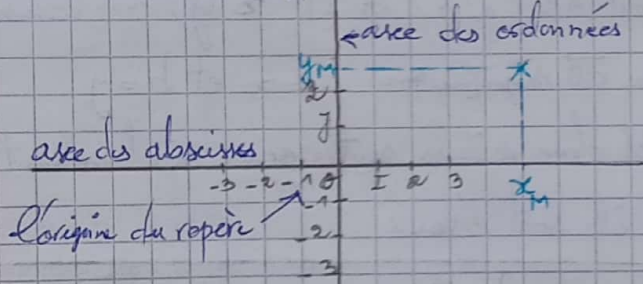 axe des ordonnées
yM
2
J
axe des abscisses
-3 -2 -1 0 I 2 3 xM
-1
l'origine du repère
-2
-3